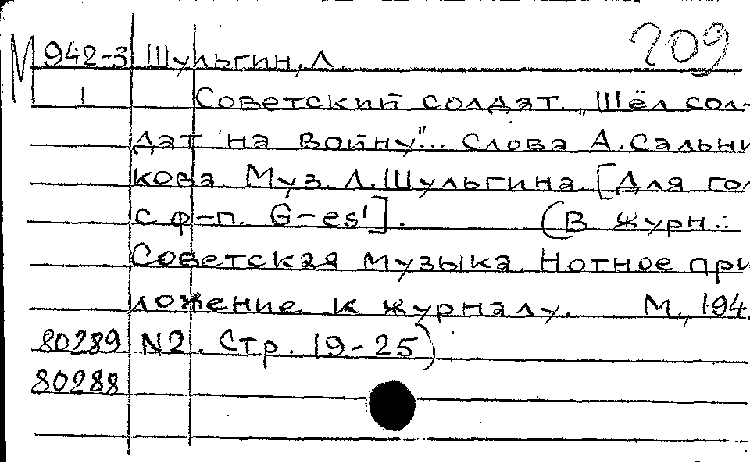 209
М 942-3 Шульгин, Л.
1 Советский солдат. „Шёл сол-
дат на войну"... Слова А. Сальни
кова. Муз. Л. Шульгина. [Для гол
с ф-п. G-es¹]. (В журн.:
Советская музыка. Нотное при
ложение к журналу. М., 194
80289 N2. Стр. 19-25)
80288